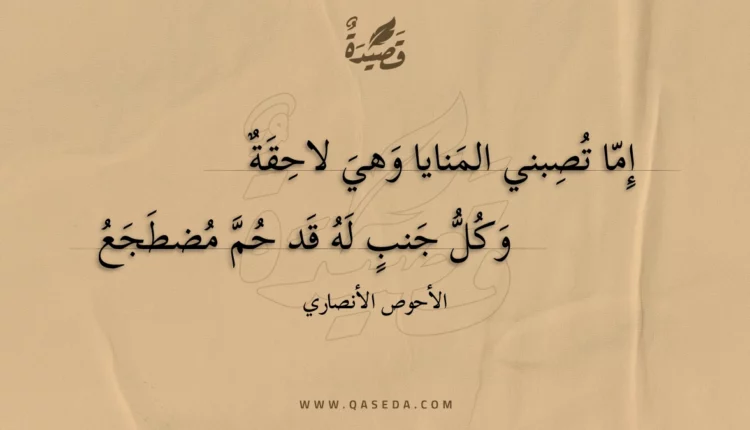 قَصِيدَةٌ
إِمّا تُصِبني المَنايا وَهيَ لاحِقَةٌ
وَكُلُّ جَنبٍ لَهُ قَد حُمَّ مُضطَجَعُ
الأحوص الأنصاري
WWW.QASEDA.COM